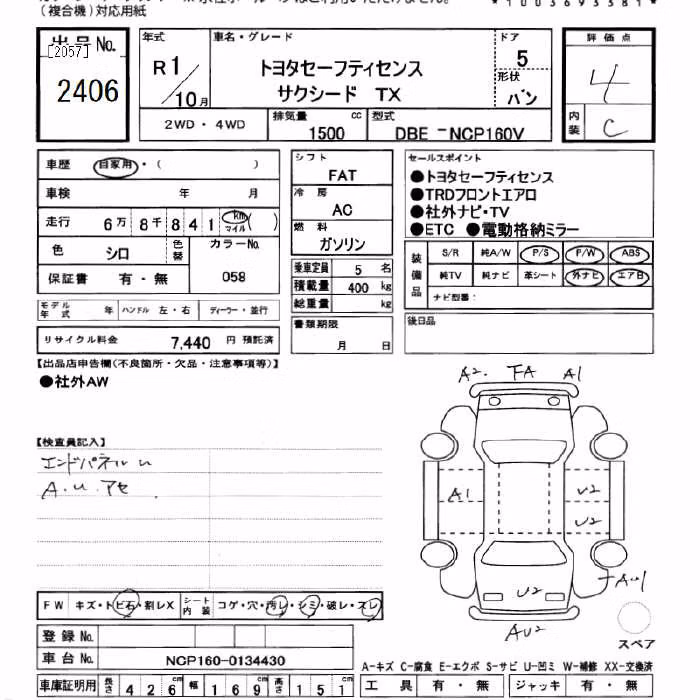 (複合機)対応用紙
*1003693381*
出品No.
[2057]
2406
年式
R1/10月
車名・グレード
トヨタセーフティセンス
サクシード TX
ドア
5
形状
バン
2WD・4WD
排気量 1500 cc
型式 DBE-NCP160V
評価点
4
内装
C
車歴 自家用・( )
車検 年 月
走行 6万8千841 km マイル ( )
色 シロ
色替
カラーNo.
058
保証書 有・無
モデル年式 年
ハンドル 左・右
ディーラー・並行
リサイクル料金 7,440 円 預託済
シフト
FAT
冷房
AC
燃料
ガソリン
乗車定員 5 名
積載量 400 kg
総重量 kg
書類期限
月 日
セールスポイント
●トヨタセーフティセンス
●TRDフロントエアロ
●社外ナビ・TV
●ETC ●電動格納ミラー
装備品
S/R 純A/W P/S P/W ABS
純TV 純ナビ 革シート 外ナビ エアB
ナビ型番:
後日品
【出品店申告欄(不良箇所・欠品・注意事項等)】
●社外AW
【検査員記入】
エンドパネルu
A.u.アセ
A2. FA A1
A1
U2
U2
U2
AU1
AU2
スペア
FW キズ・トビ石・割レX
シート内装 コゲ・穴・汚レ・シミ・破レ・スレ
登録No.
車台No. NCP160-0134430
車庫証明用 長さ 426 cm 幅 169 cm 高さ 151 cm
A-キズ C-腐食 E-エクボ S-サビ U-凹ミ W-補修 XX-交換済
工具 有・無 ジャッキ 有・無